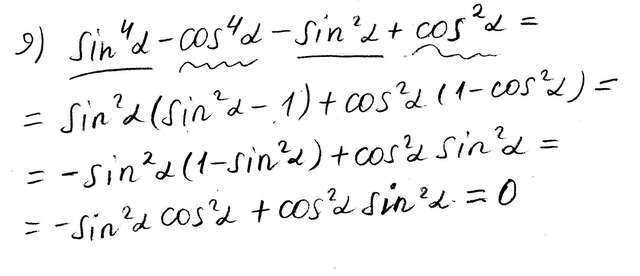 9) sin⁴α - cos⁴α - sin²α + cos²α =
= sin²α (sin²α - 1) + cos²α (1 - cos²α) =
= -sin²α (1 - sin²α) + cos²α sin²α =
= -sin²α cos²α + cos²α sin²α. = 0